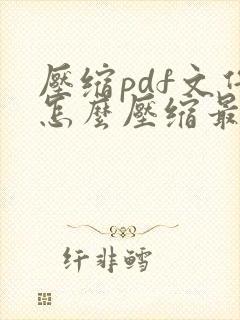 壓缩pdf文件
怎麼壓缩最
纤非鳕